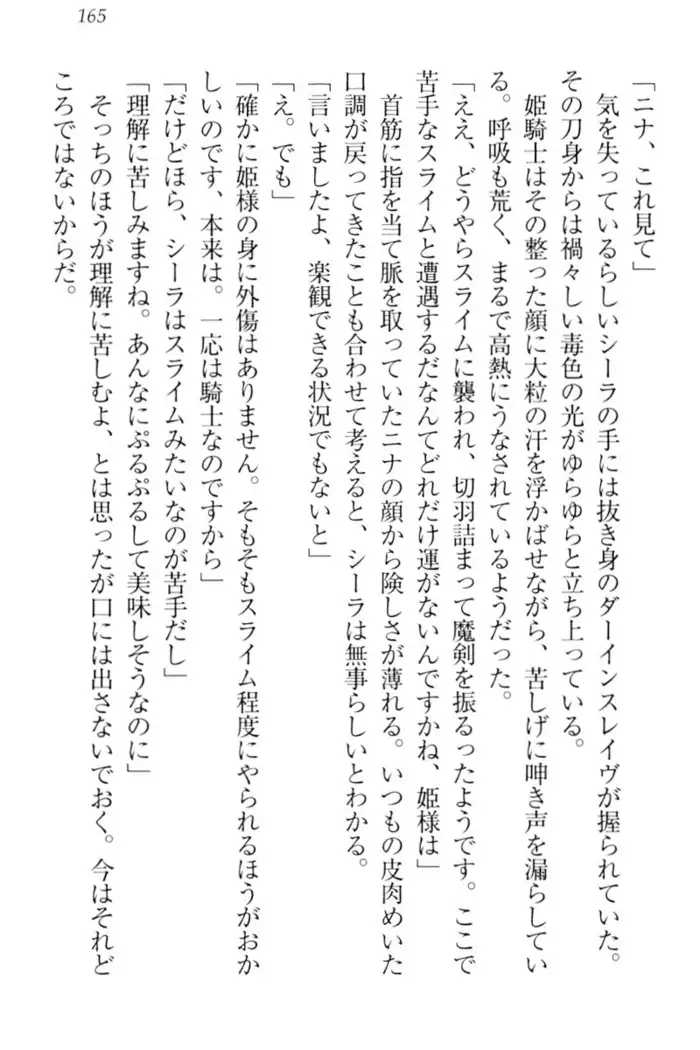 165
「ニナ、これ見て」
　気を失っているらしいシーラの手には抜き身のダーインスレイヴが握られていた。
その刀身からは禍々しい毒色の光がゆらゆらと立ち上っている。
　姫騎士はその整った顔に大粒の汗を浮かばせながら、苦しげに呻き声を漏らしてい
る。呼吸も荒く、まるで高熱にうなされているようだった。
「ええ、どうやらスライムに襲われ、切羽詰まって魔剣を振るったようです。ここで
苦手なスライムと遭遇するだなんてどれだけ運がないんですかね、姫様は」
　首筋に指を当て脈を取っていたニナの顔から険しさが薄れる。いつもの皮肉めいた
口調が戻ってきたことも合わせて考えると、シーラは無事らしいとわかる。
「言いましたよ、楽観できる状況でもないと」
「え。でも」
「確かに姫様の身に外傷はありません。そもそもスライム程度にやられるほうがおか
しいのです、本来は。一応は騎士なのですから」
「だけどほら、シーラはスライムみたいなのが苦手だし」
「理解に苦しみますね。あんなにぷるぷるして美味しそうなのに」
　そっちのほうが理解に苦しむよ、とは思ったが口には出さないでおく。今はそれど
ころではないからだ。